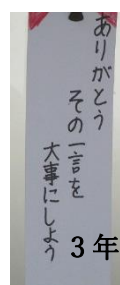 ありがとう
その一言を
大事にしよう
3年